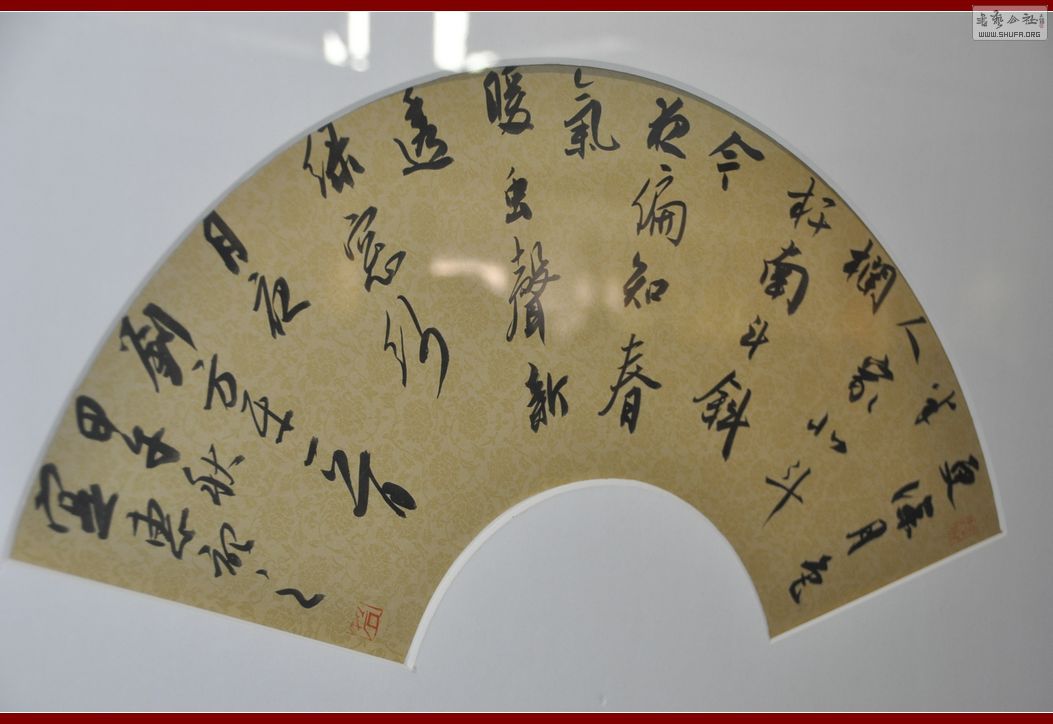 更深月色
半
人家北斗
欄
杆南斗斜
今
夜偏知春
氣
暖虫聲新
透
綠窗紗
月夜
劉方平一首
甲午秋
書藝公社
WWW.SHUFA.ORG